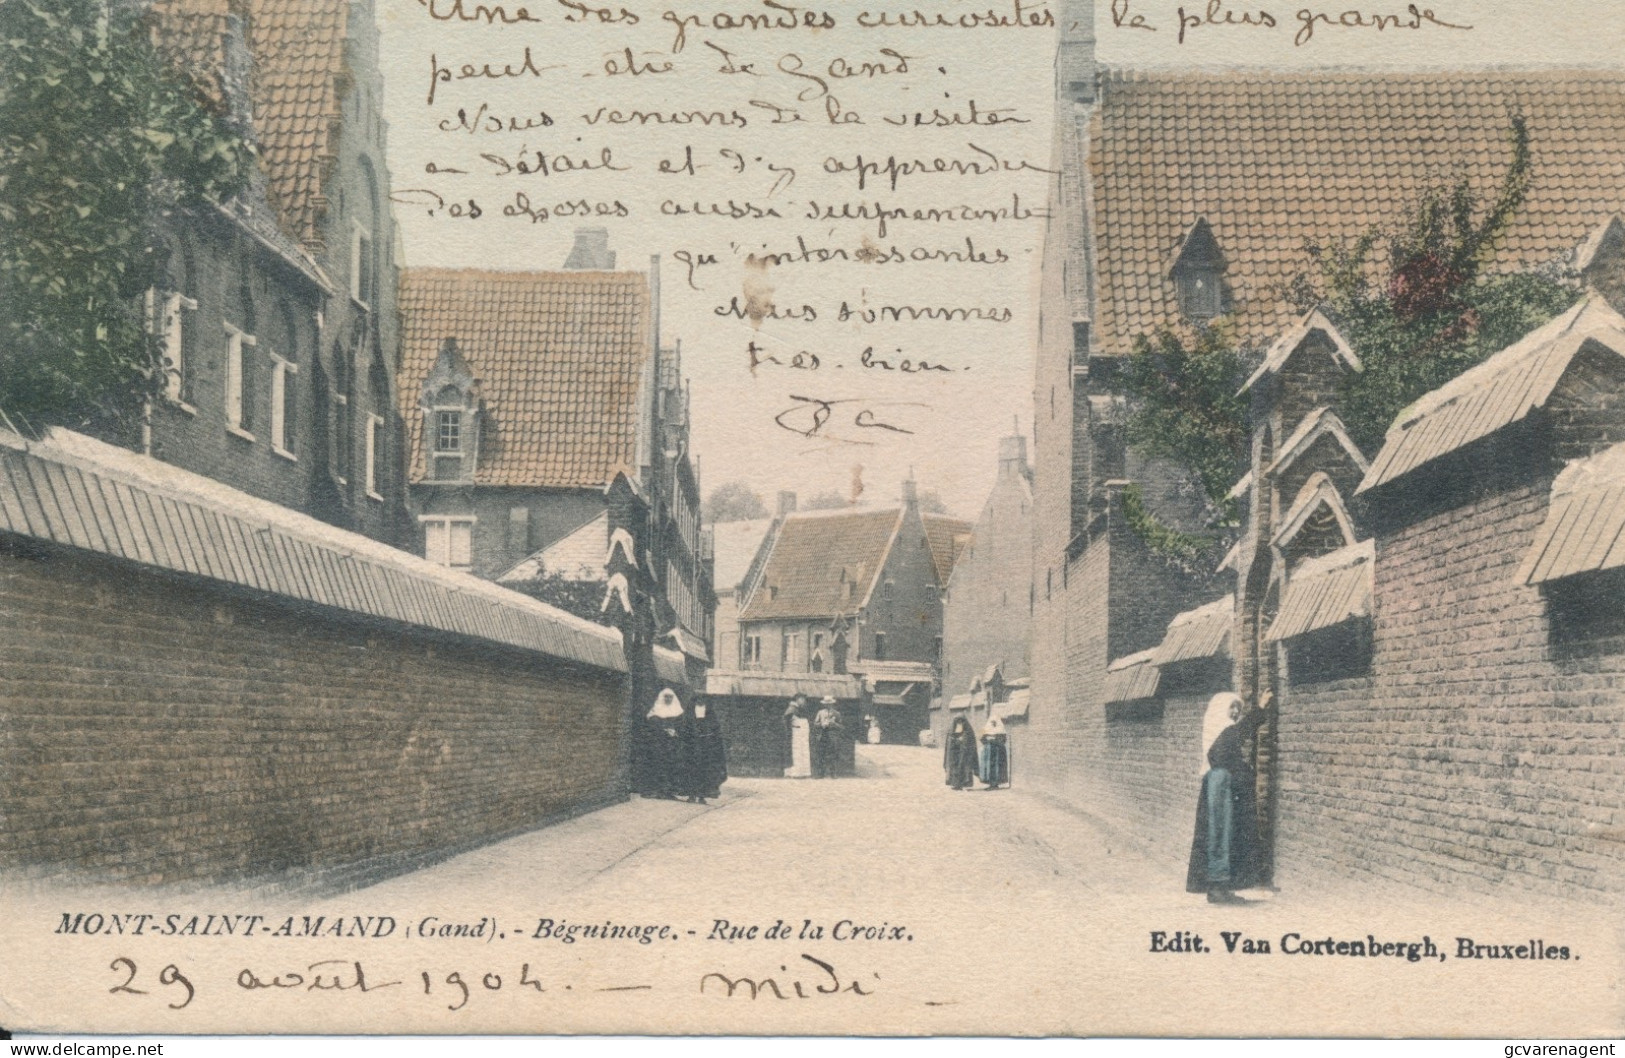 Une des grandes curiosités, la plus grande
peut être de Gand.
Nous venons de la visiter
en détail et d'y apprendre
des choses aussi surprenantes
qu'intéressantes.
Nous sommes
très bien.
MONT-SAINT-AMAND (Gand). - Béguinage. - Rue de la Croix.
Edit. Van Cortenbergh, Bruxelles.
29 août 1904. — midi —
delcampe.net
gcvarenagent